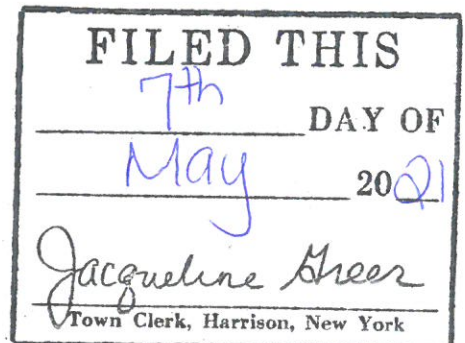 FILED THIS
7th DAY OF
May 2021
Jacqueline Greer
Town Clerk, Harrison, New York